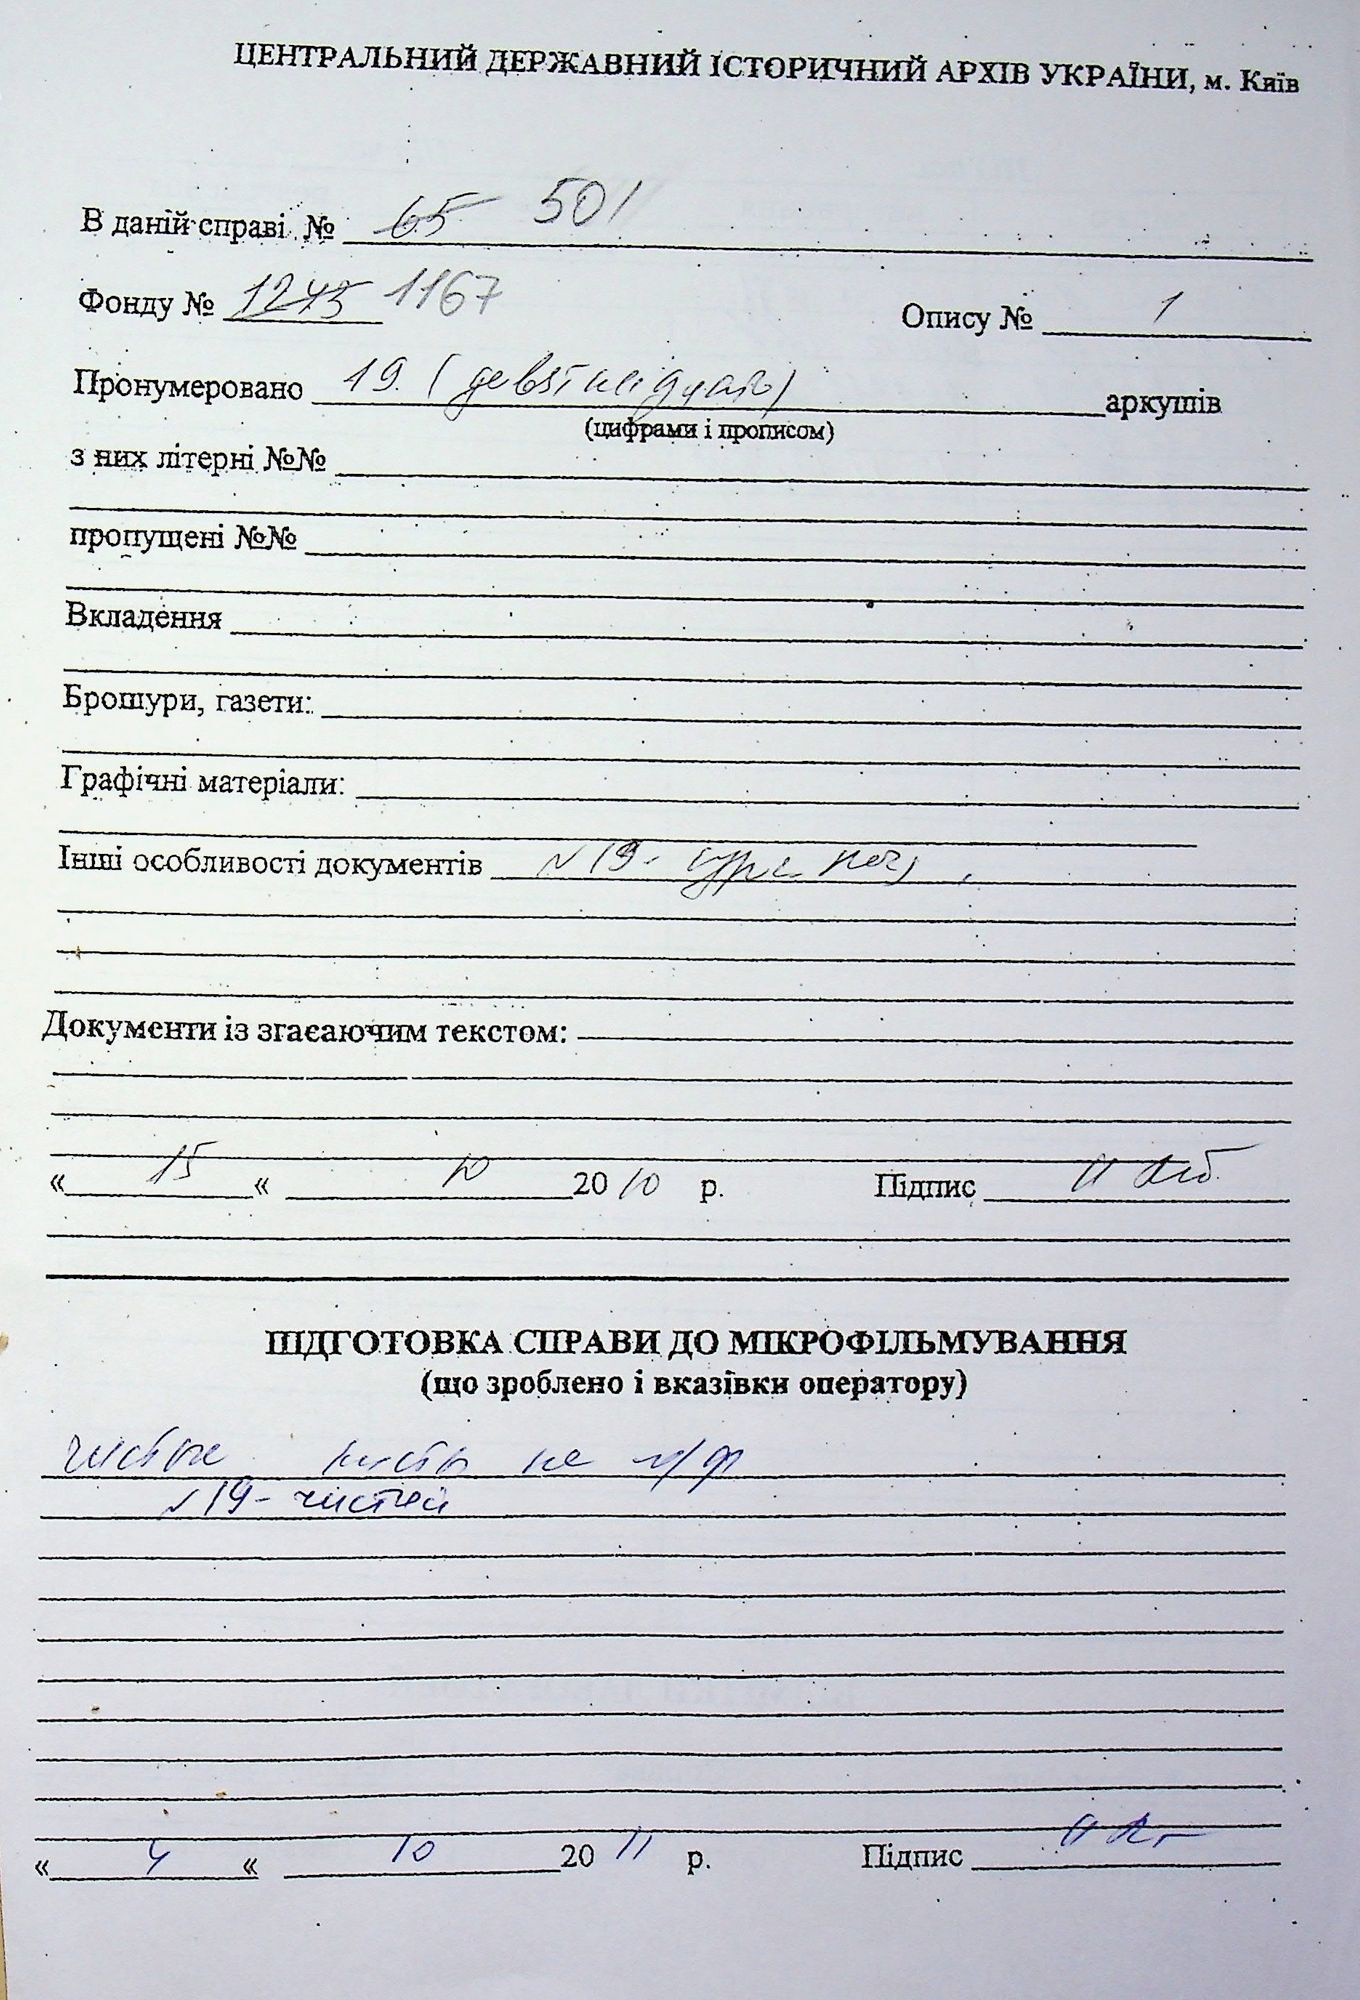 ЦЕНТРАЛЬНИЙ ДЕРЖАВНИЙ ІСТОРИЧНИЙ АРХІВ УКРАЇНИ, м. Київ
В даній справі № 65 501
Фонду № 1245 1167 Опису № 1
Пронумеровано 19 (дев'ятнадцять) аркушів
(цифрами і прописом)
з них літерні №№
пропущені №№
Вкладення
Брошури, газети:
Графічні матеріали:
Інші особливості документів №19-
Документи із згасаючим текстом:
« 15 « 10 2010 р. Підпис
ПІДГОТОВКА СПРАВИ ДО МІКРОФІЛЬМУВАННЯ
(що зроблено і вказівки оператору)
чисты не м/ф
№19- чистый
« 4 « 10 2011 р. Підпис